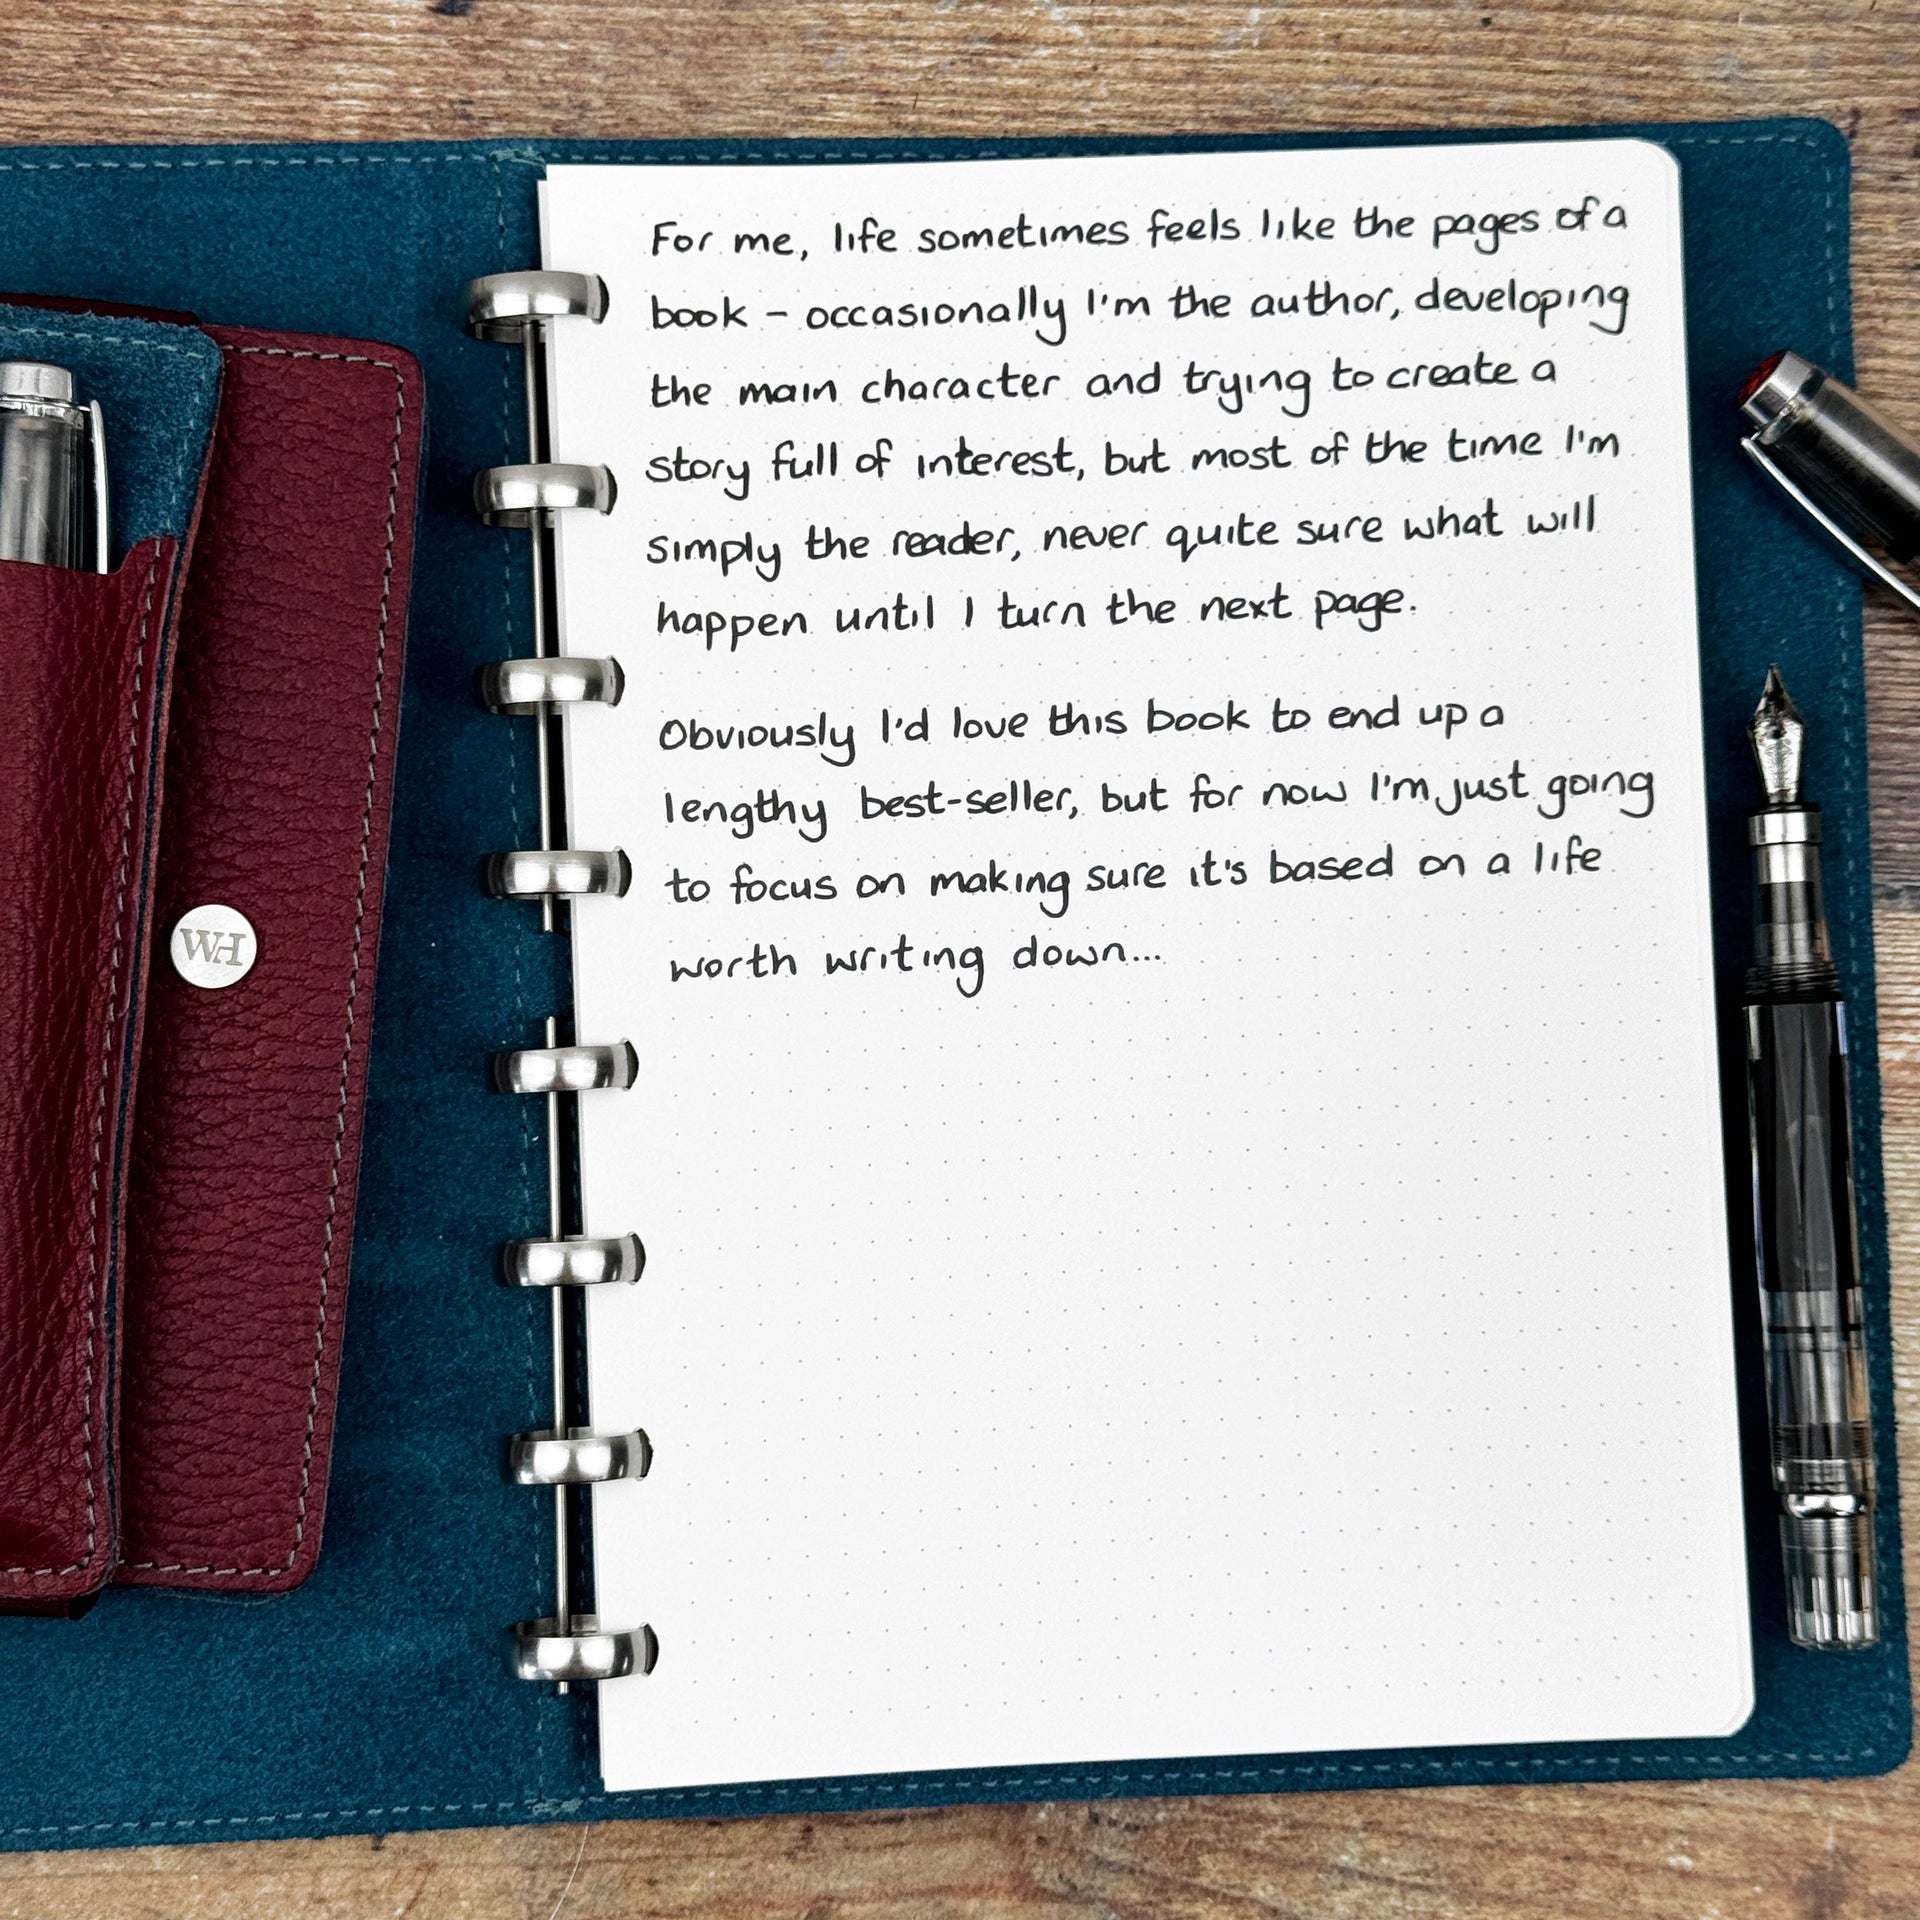 For me, life sometimes feels like the pages of a
book - occasionally I'm the author, developing
the main character and trying to create a
story full of interest, but most of the time I'm
simply the reader, never quite sure what will
happen until I turn the next page.
Obviously I'd love this book to end up a
lengthy best-seller, but for now I'm just going
to focus on making sure it's based on a life
worth writing down...
WH